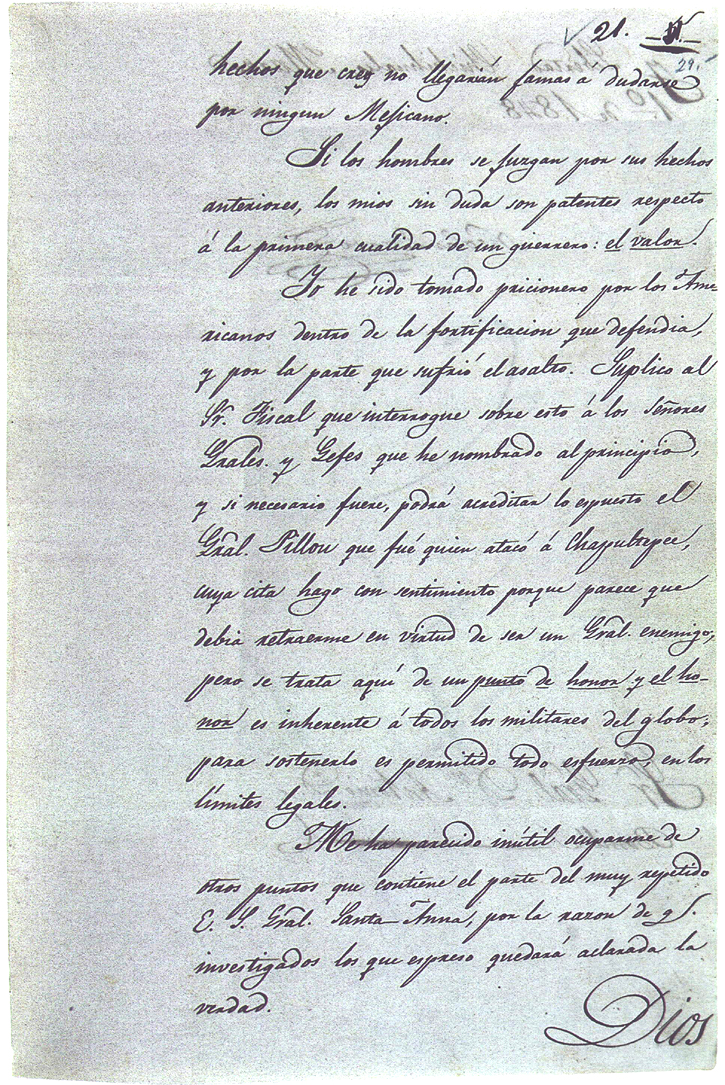 21.
29.
hechos que creo no llegarán jamas a dudarse
por ningun Mejicano.
Si los hombres se juzgan por sus hechos
anteriores, los mios sin duda son patentes respecto
á la primera cualidad de un guerrero: el valor.
Yo he sido tomado pricionero por los Ame-
ricanos dentro de la fortificacion que defendia,
y por la parte que sufrió el asalto. Suplico al
Sr. Fiscal que interrogue sobre esto á los señores
Grales. y Gefes que he nombrado al principio,
y si necesario fuere, podrá acreditar lo espuesto el
Gral. Pillou que fué quien atacó á Chapultepec,
cuya cita hago con sentimiento porque parece que
debia retraerme en virtud de ser un Gral. enemigo;
pero se trata aquí de un punto de honor y el ho-
nor es inherente á todos los militares del globo;
para sostenerlo es permitido todo esfuerzo, en los
límites legales.
Me ha parecido inútil ocuparme de
otros puntos que contiene el parte del muy repetido
E. S. Gral. Santa-Anna, por la razon de q.
investigados los que espreso quedará aclarada la
verdad.
Dios